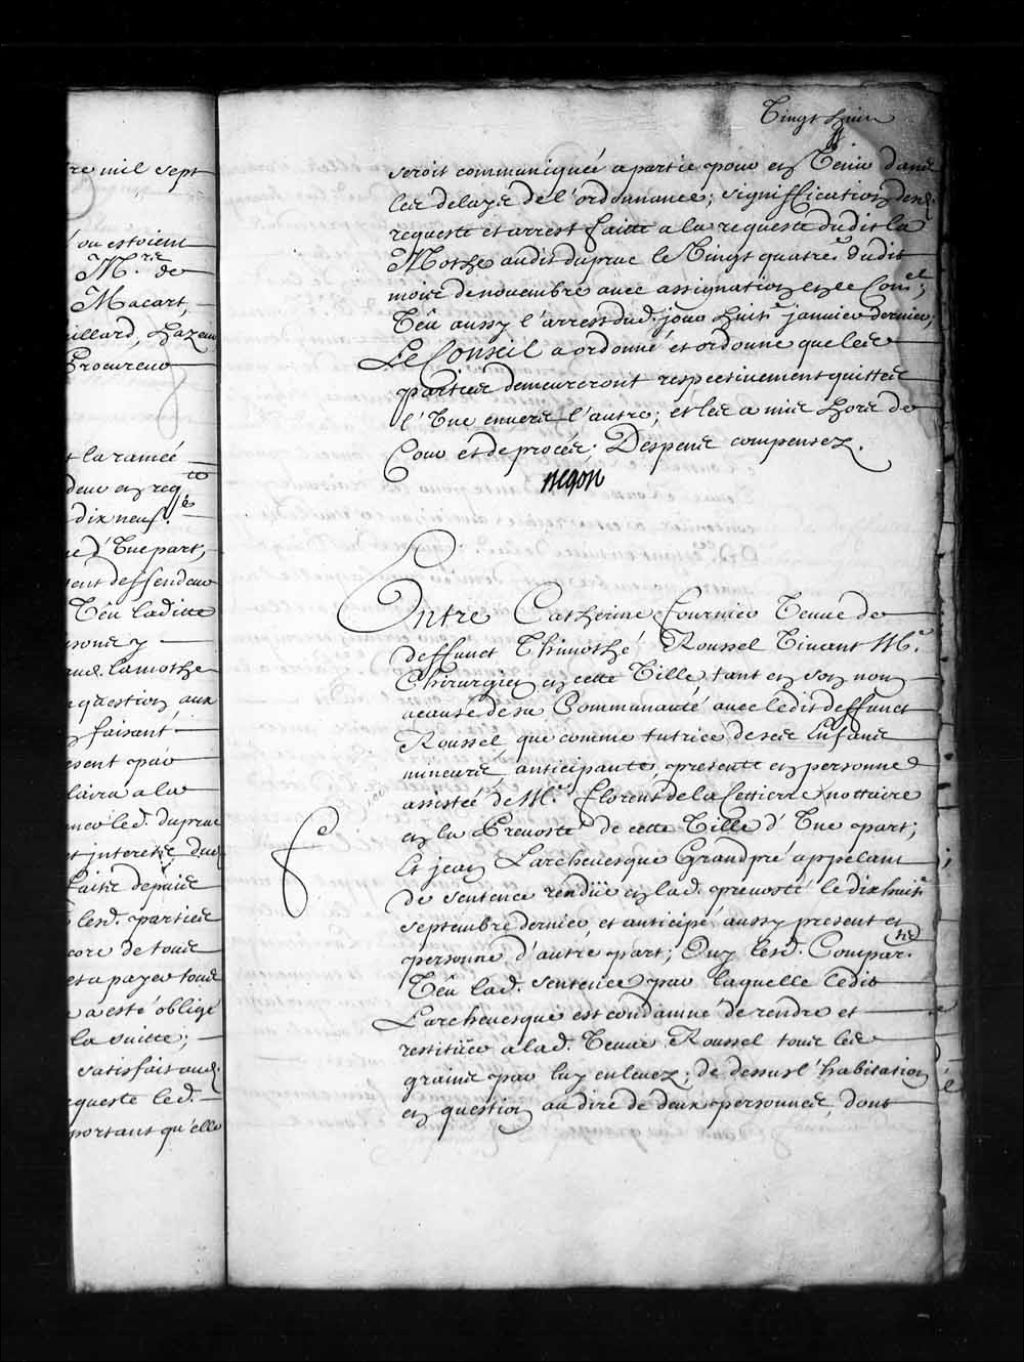 tre mil sept
ou estoient
M.re de
Macart,
aillard, hazeur
Procureur
t la ramée
deur en req.te
dix neuf.e
ne d'Vne part,
ent deffendeur
Veu laditte
aud. lamothe
question aux
faisant
esent par
laira a la
ance led. duprac
et interests, du
faire depuis
lesd. parties
core de tous
et a payer tous
a esté obligé
la suitte;
satisfait aud.
queste led.
portant qu'elle
Vingt huit
seroit communiquée a partie pour en Venir dans
les delays de l'ordonnance; signiffication desd.
requeste et arrest faitte a la requeste dudit la
Mothe audit duprac le Vingt quatre.e dudit
mois de novembre avec assignation en ce Con.el;
Veu aussy l'arrest dud. jour huit.e janvier dernier;
Le Conseil a ordonné et ordonne que les
parties demeureront respectivement quittes
l'Vne envers l'autre; et les a mis hors de
Cour et de procés; Despens compensez.
Begon
Entre Catherine fournier Veuve de
deffunct Thimothé Roussel Vivant M.e
Chirurgien en cette Ville tant en son nom
acause de sa Communauté avec ledit deffunct
Roussel, que comme tutrice de ses Enfans
mineurs, anticipante, presente en personne
assistée de M.e florent de la Cettiere nottaire
en la Prevosté de cette Ville d'Vne part;
Et jean Larchevesque Grandpré appelant
de sentence rendüe en lad. prevosté le dix huit.e
septembre dernier, et anticipé aussy present en
personne d'autre part; Ouy lesd. Compar.ns
Veu lad. sentence par laquelle ledit
Larchevesque est condamné de rendre et
restitüer a lad. Veuve Roussel tous les
grains par luy enlevez; de dessus l'habitation
en question au dire de deux personnes, dont